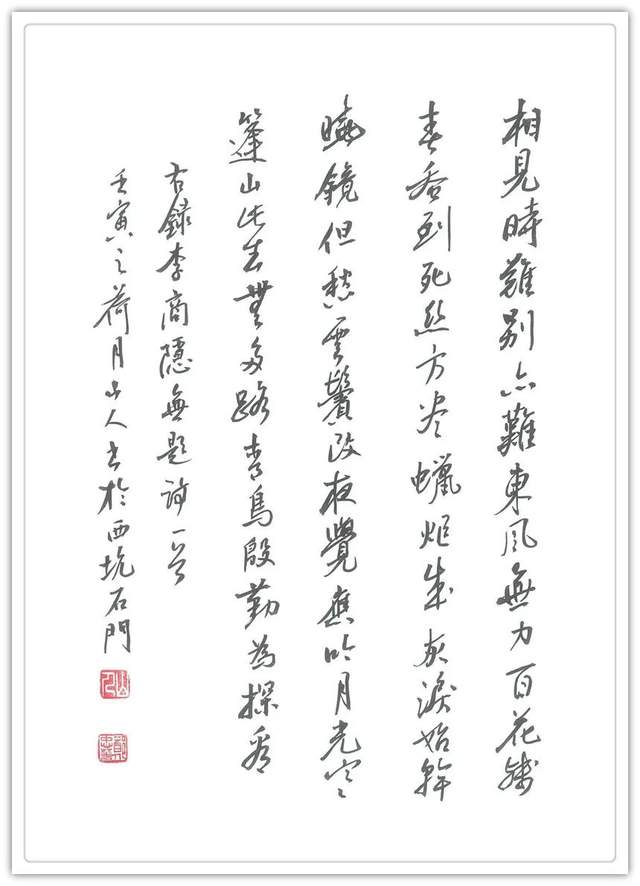 相見時難別亦難東風無力百花殘
春蚕到死絲方尽蠟炬成灰淚始幹
曉鏡但愁雲鬢改夜覺應吟月光寒
篷山此去無多路青鳥殷勤為探看
右錄李商隱無題詩一首
壬寅之荷月山人书於西坑石門
山人